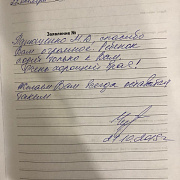 Заявление №
М.Ю., спасибо
Вам огромное. Ребенок
только к Вам.
Очень хороший врач!
Желаем Вам всегда оставаться
таким